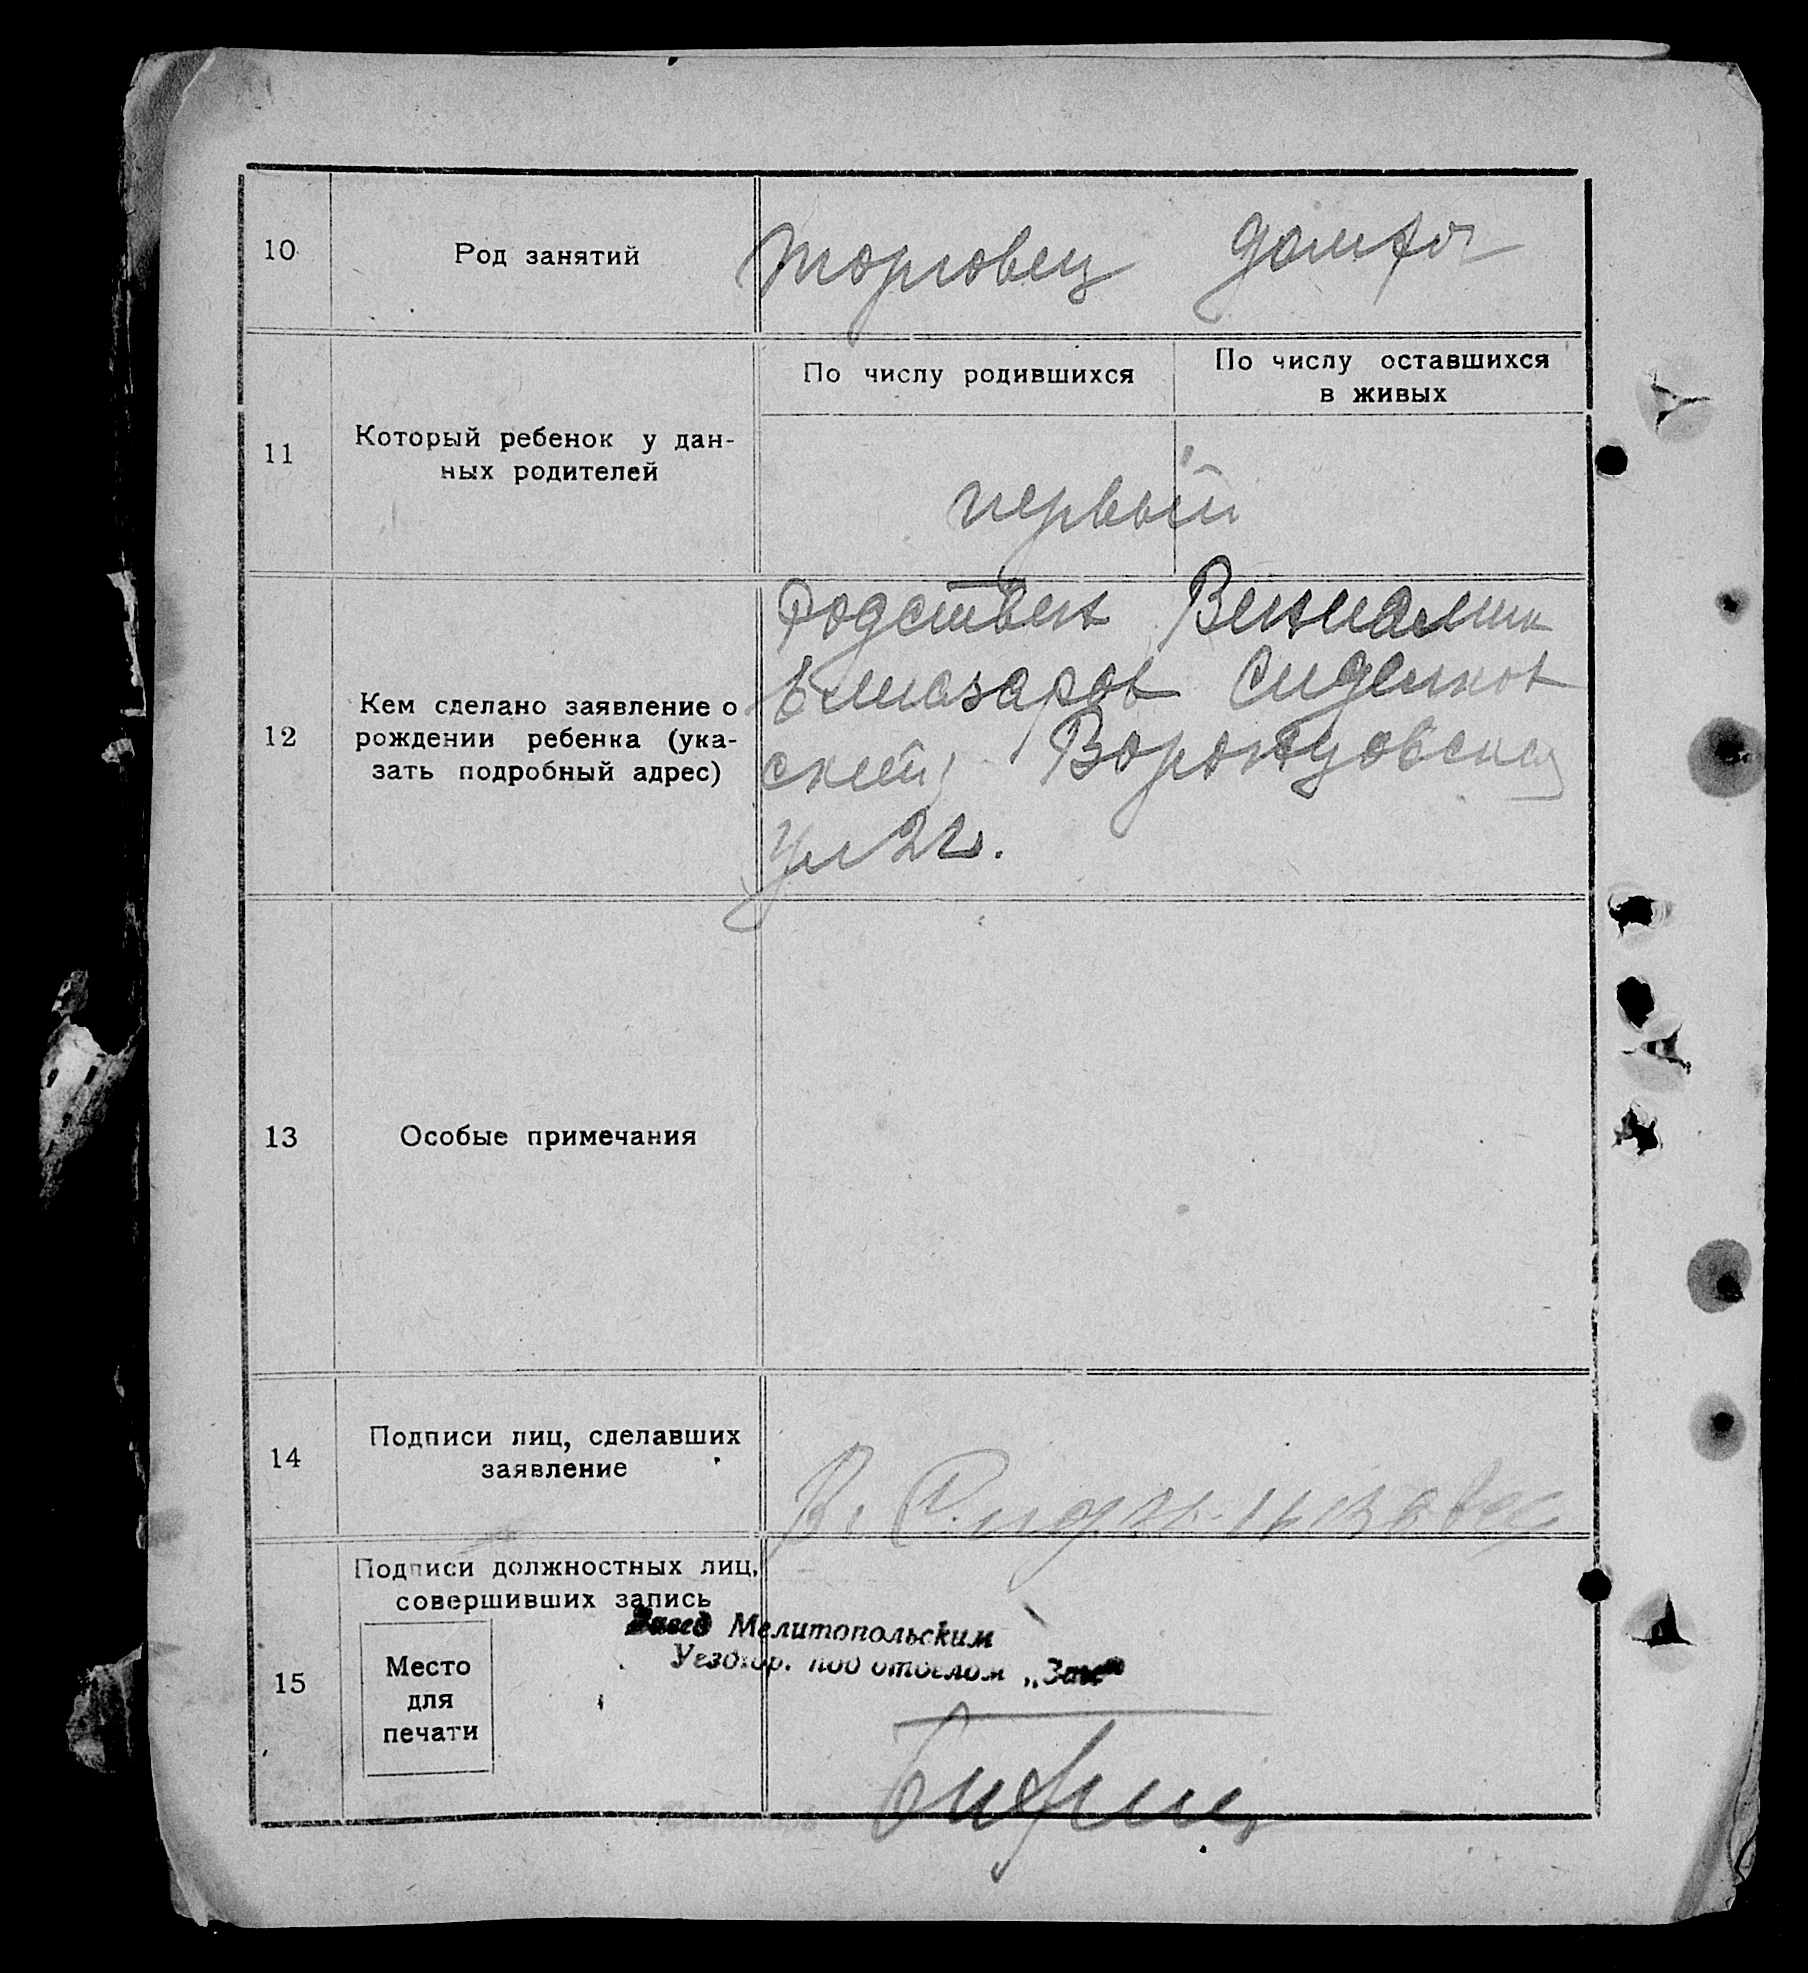 10
Род занятий
торговец домхоз
11
Который ребенок у дан-
ных родителей
По числу родившихся
По числу оставшихся
в живых
первый
12
Кем сделано заявление о
рождении ребенка (ука-
зать подробный адрес)
Родствен Вениамин
Елиазаров
ский, Воронцовская
ул
13
Особые примечания
14
Подписи лиц, сделавших
заявление
В.
15
Подписи должностных лиц,
совершивших запись
Завед Мелитопольским
Уездгор. под отделом „Загс"
Место
для
печати